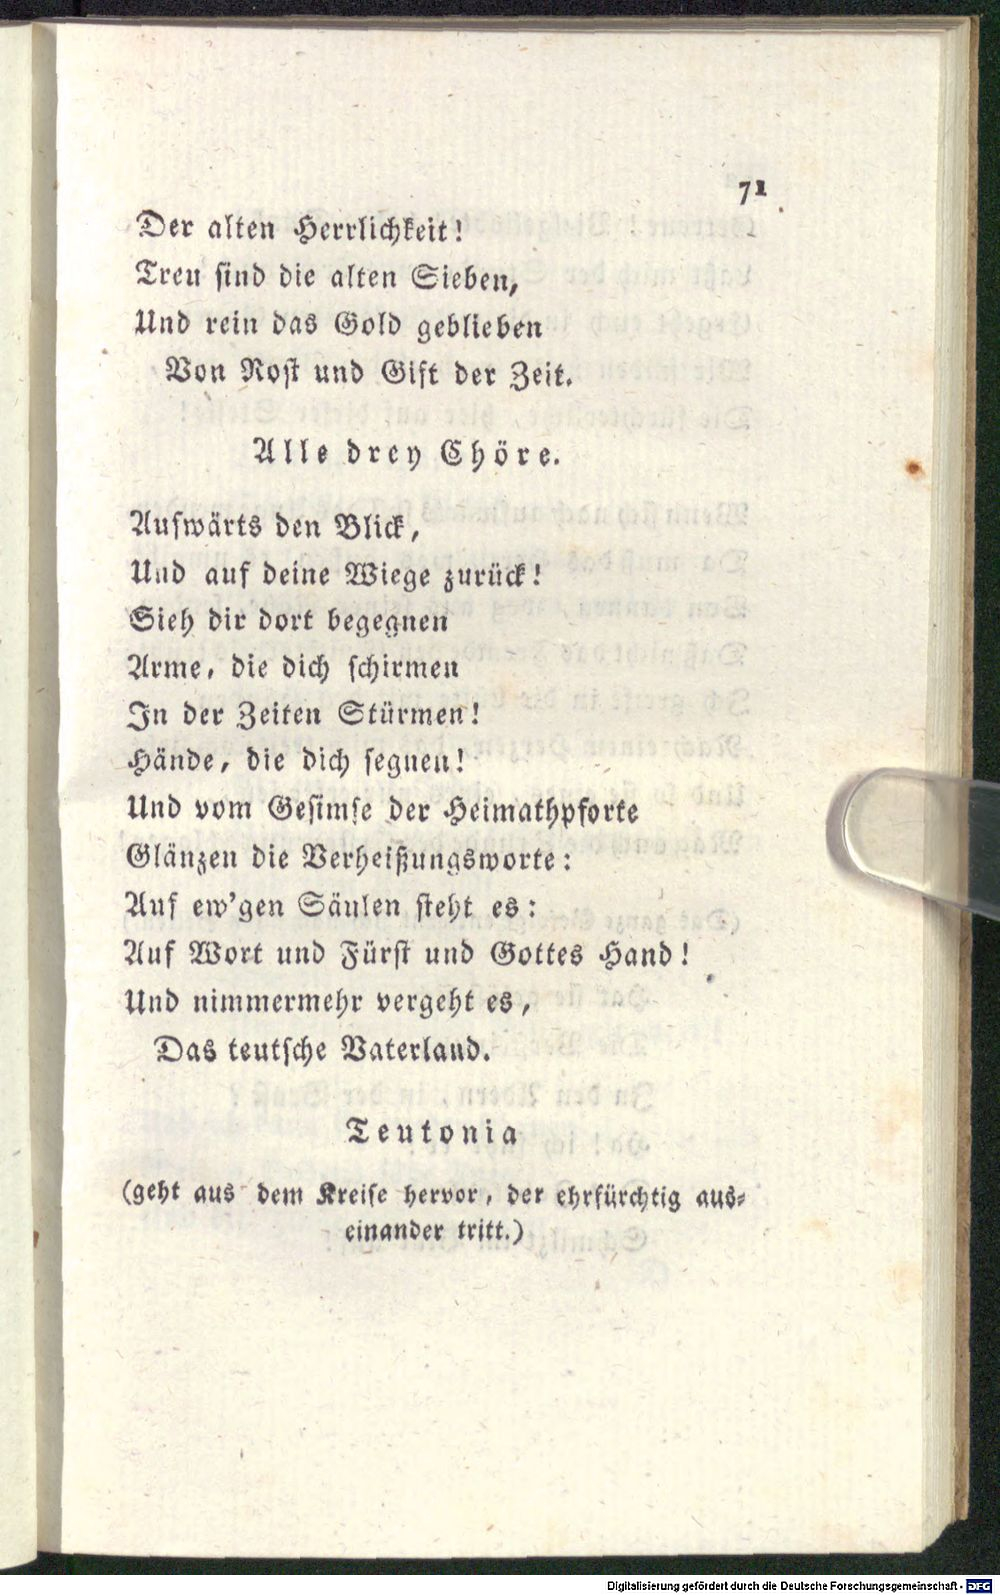 71
Der alten Herrlichkeit!
Treu sind die alten Sieben,
Und rein das Gold geblieben
Von Rost und Gift der Zeit.
Alle drey Chöre.
Aufwärts den Blick,
Und auf deine Wiege zurück!
Sieh dir dort begegnen
Arme, die dich schirmen
In der Zeiten Stürmen!
Hände, die dich segnen!
Und vom Gesimse der Heimathpforte
Glänzen die Verheißungsworte:
Auf ew'gen Säulen steht es:
Auf Wort und Fürst und Gottes Hand!
Und nimmermehr vergeht es,
Das teutsche Vaterland.
Teutonia
(geht aus dem Kreise hervor, der ehrfürchtig aus-
einander tritt.)
Digitalisierung gefördert durch die Deutsche Forschungsgemeinschaft - DFG